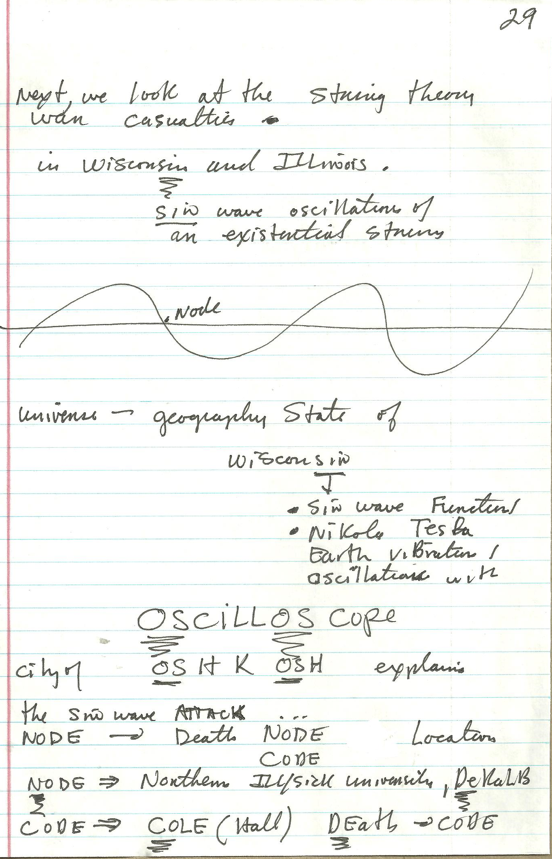 29
Next, we look at the string theory
war casualties
in Wisconsin and Illinois.
sin wave oscillation of
an existential string
. Node
universe — geography State of
Wisconsin
• sin wave Function /
• Nikola Tesla
Earth vibration /
oscillations with
OSCILLOSCope
city of OSHKOSH explains
the sin wave ATTACK ...
NODE → Death NODE Location
CODE
NODE ⇒ Northern Ill/sick university, DeKaLB
CODE ⇒ COLE (Hall) DEath → CODE